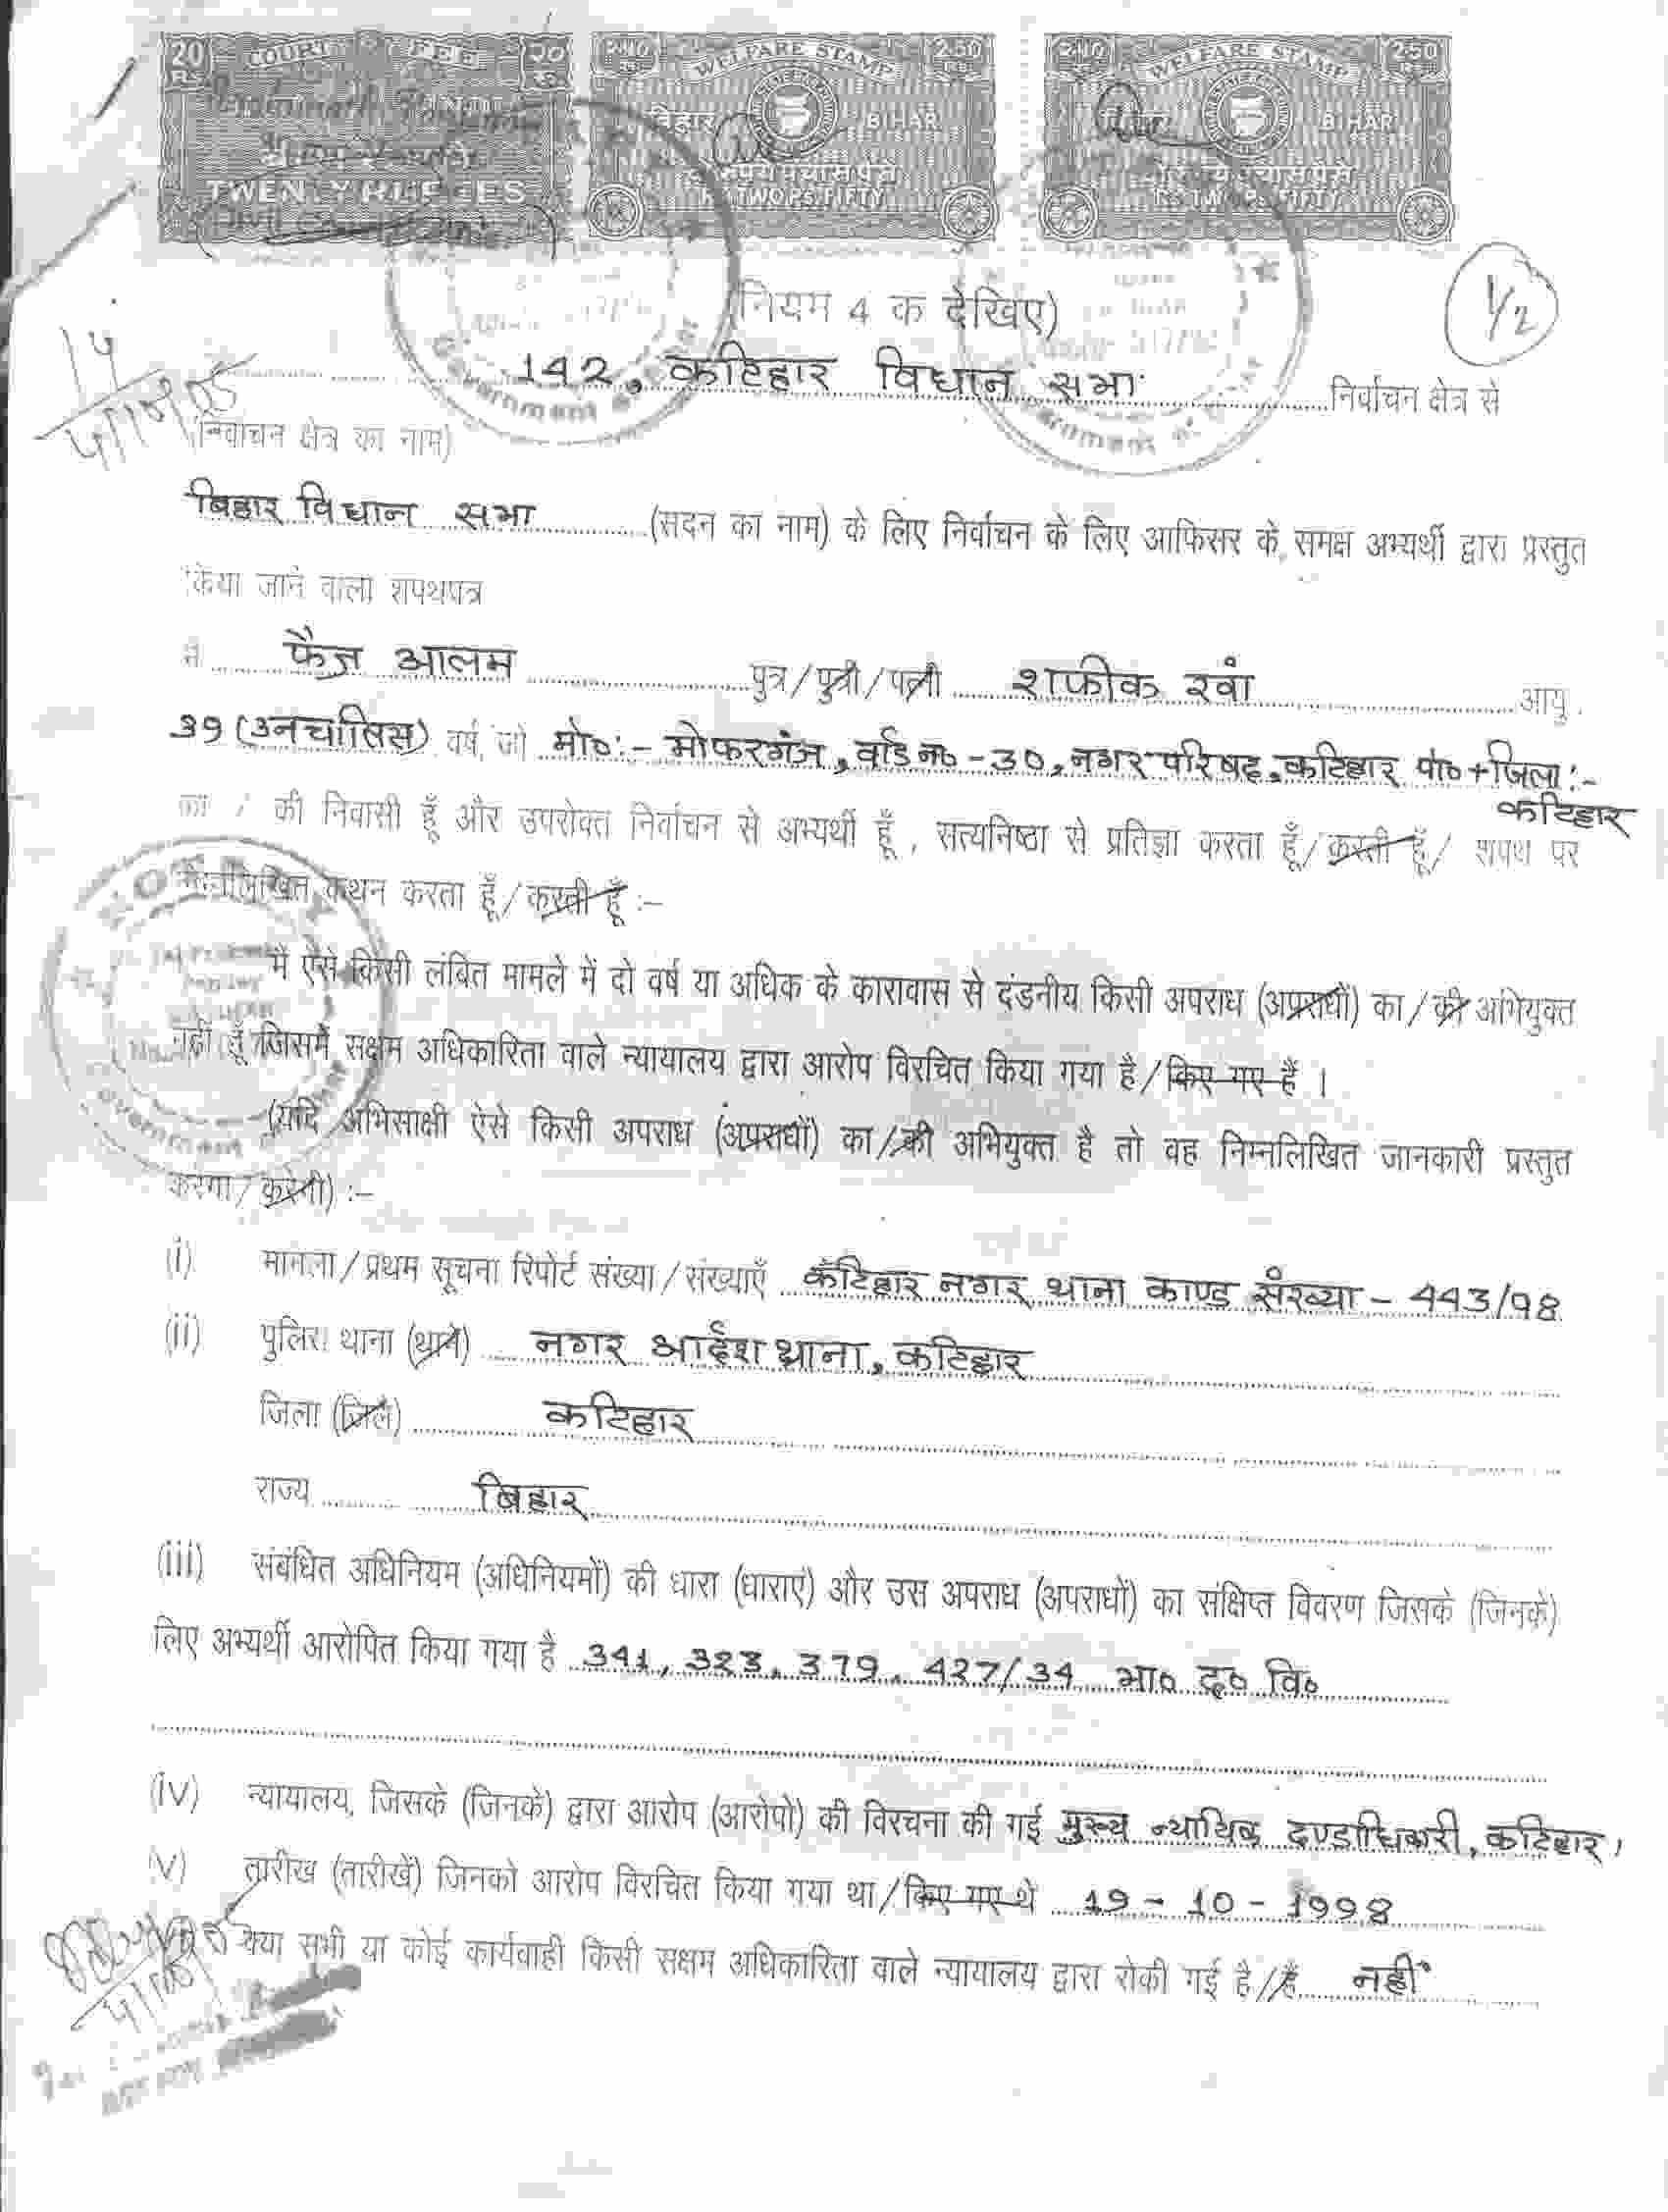 20 COURT FEE २०
RS. रु.
TWENTY RUPEES
2.50 WELFARE STAMP 2.50
बिहार BIHAR
दो रुपये पचास पैसे
RS. TWO PS. FIFTY
2.50 WELFARE STAMP 2.50
बिहार BIHAR
RS. TWO PS. FIFTY
1/2
(नियम 4 क देखिए)
142, कटिहार विधान सभा निर्वाचन क्षेत्र से
(निर्वाचन क्षेत्र का नाम)
बिहार विधान सभा (सदन का नाम) के लिए निर्वाचन के लिए आफिसर के समक्ष अभ्यर्थी द्वारा प्रस्तुत
किया जाने वाला शपथपत्र
मैं फैज आलम पुत्र/पुत्री/पत्नी शफीक खाँ आयु
39 (उनचालिस) वर्ष, जो मो०:- मोफरगंज, वार्ड न० - 30, नगर परिषद, कटिहार पो० + जिला:-
कटिहार
का / की निवासी हूँ और उपरोक्त निर्वाचन से अभ्यर्थी हूँ, सत्यनिष्ठा से प्रतिज्ञा करता हूँ/ करती हूँ/ शपथ पर
निम्नलिखित कथन करता हूँ/ करती हूँ :–
मैं ऐसे किसी लंबित मामले में दो वर्ष या अधिक के कारावास से दंडनीय किसी अपराध (अपराधों) का/ की अभियुक्त
नहीं हूँ जिसमें सक्षम अधिकारिता वाले न्यायालय द्वारा आरोप विरचित किया गया है/ किए गए हैं ।
(यदि अभिसाक्षी ऐसे किसी अपराध (अपराधों) का/ की अभियुक्त है तो वह निम्नलिखित जानकारी प्रस्तुत
करेगा/ करेगी) :–
(i) मामला/प्रथम सूचना रिपोर्ट संख्या/संख्याएँ कटिहार नगर थाना काण्ड संख्या – 443/98
(ii) पुलिस थाना (थाने) नगर आर्दश थाना, कटिहार
जिला (जिले) कटिहार
राज्य बिहार
(iii) संबंधित अधिनियम (अधिनियमों) की धारा (धाराएं) और उस अपराध (अपराधों) का संक्षिप्त विवरण जिसके (जिनके)
लिए अभ्यर्थी आरोपित किया गया है 341, 323, 379, 427/34 भा० द० वि०
(iv) न्यायालय, जिसके (जिनके) द्वारा आरोप (आरोपो) की विरचना की गई मुख्य न्यायिक दण्डाधिकारी, कटिहार।
(v) तारीख (तारीखें) जिनको आरोप विरचित किया गया था/ किए गए थे 19 - 10 - 1998
क्या सभी या कोई कार्यवाही किसी सक्षम अधिकारिता वाले न्यायालय द्वारा रोकी गई है/हैं नहीं